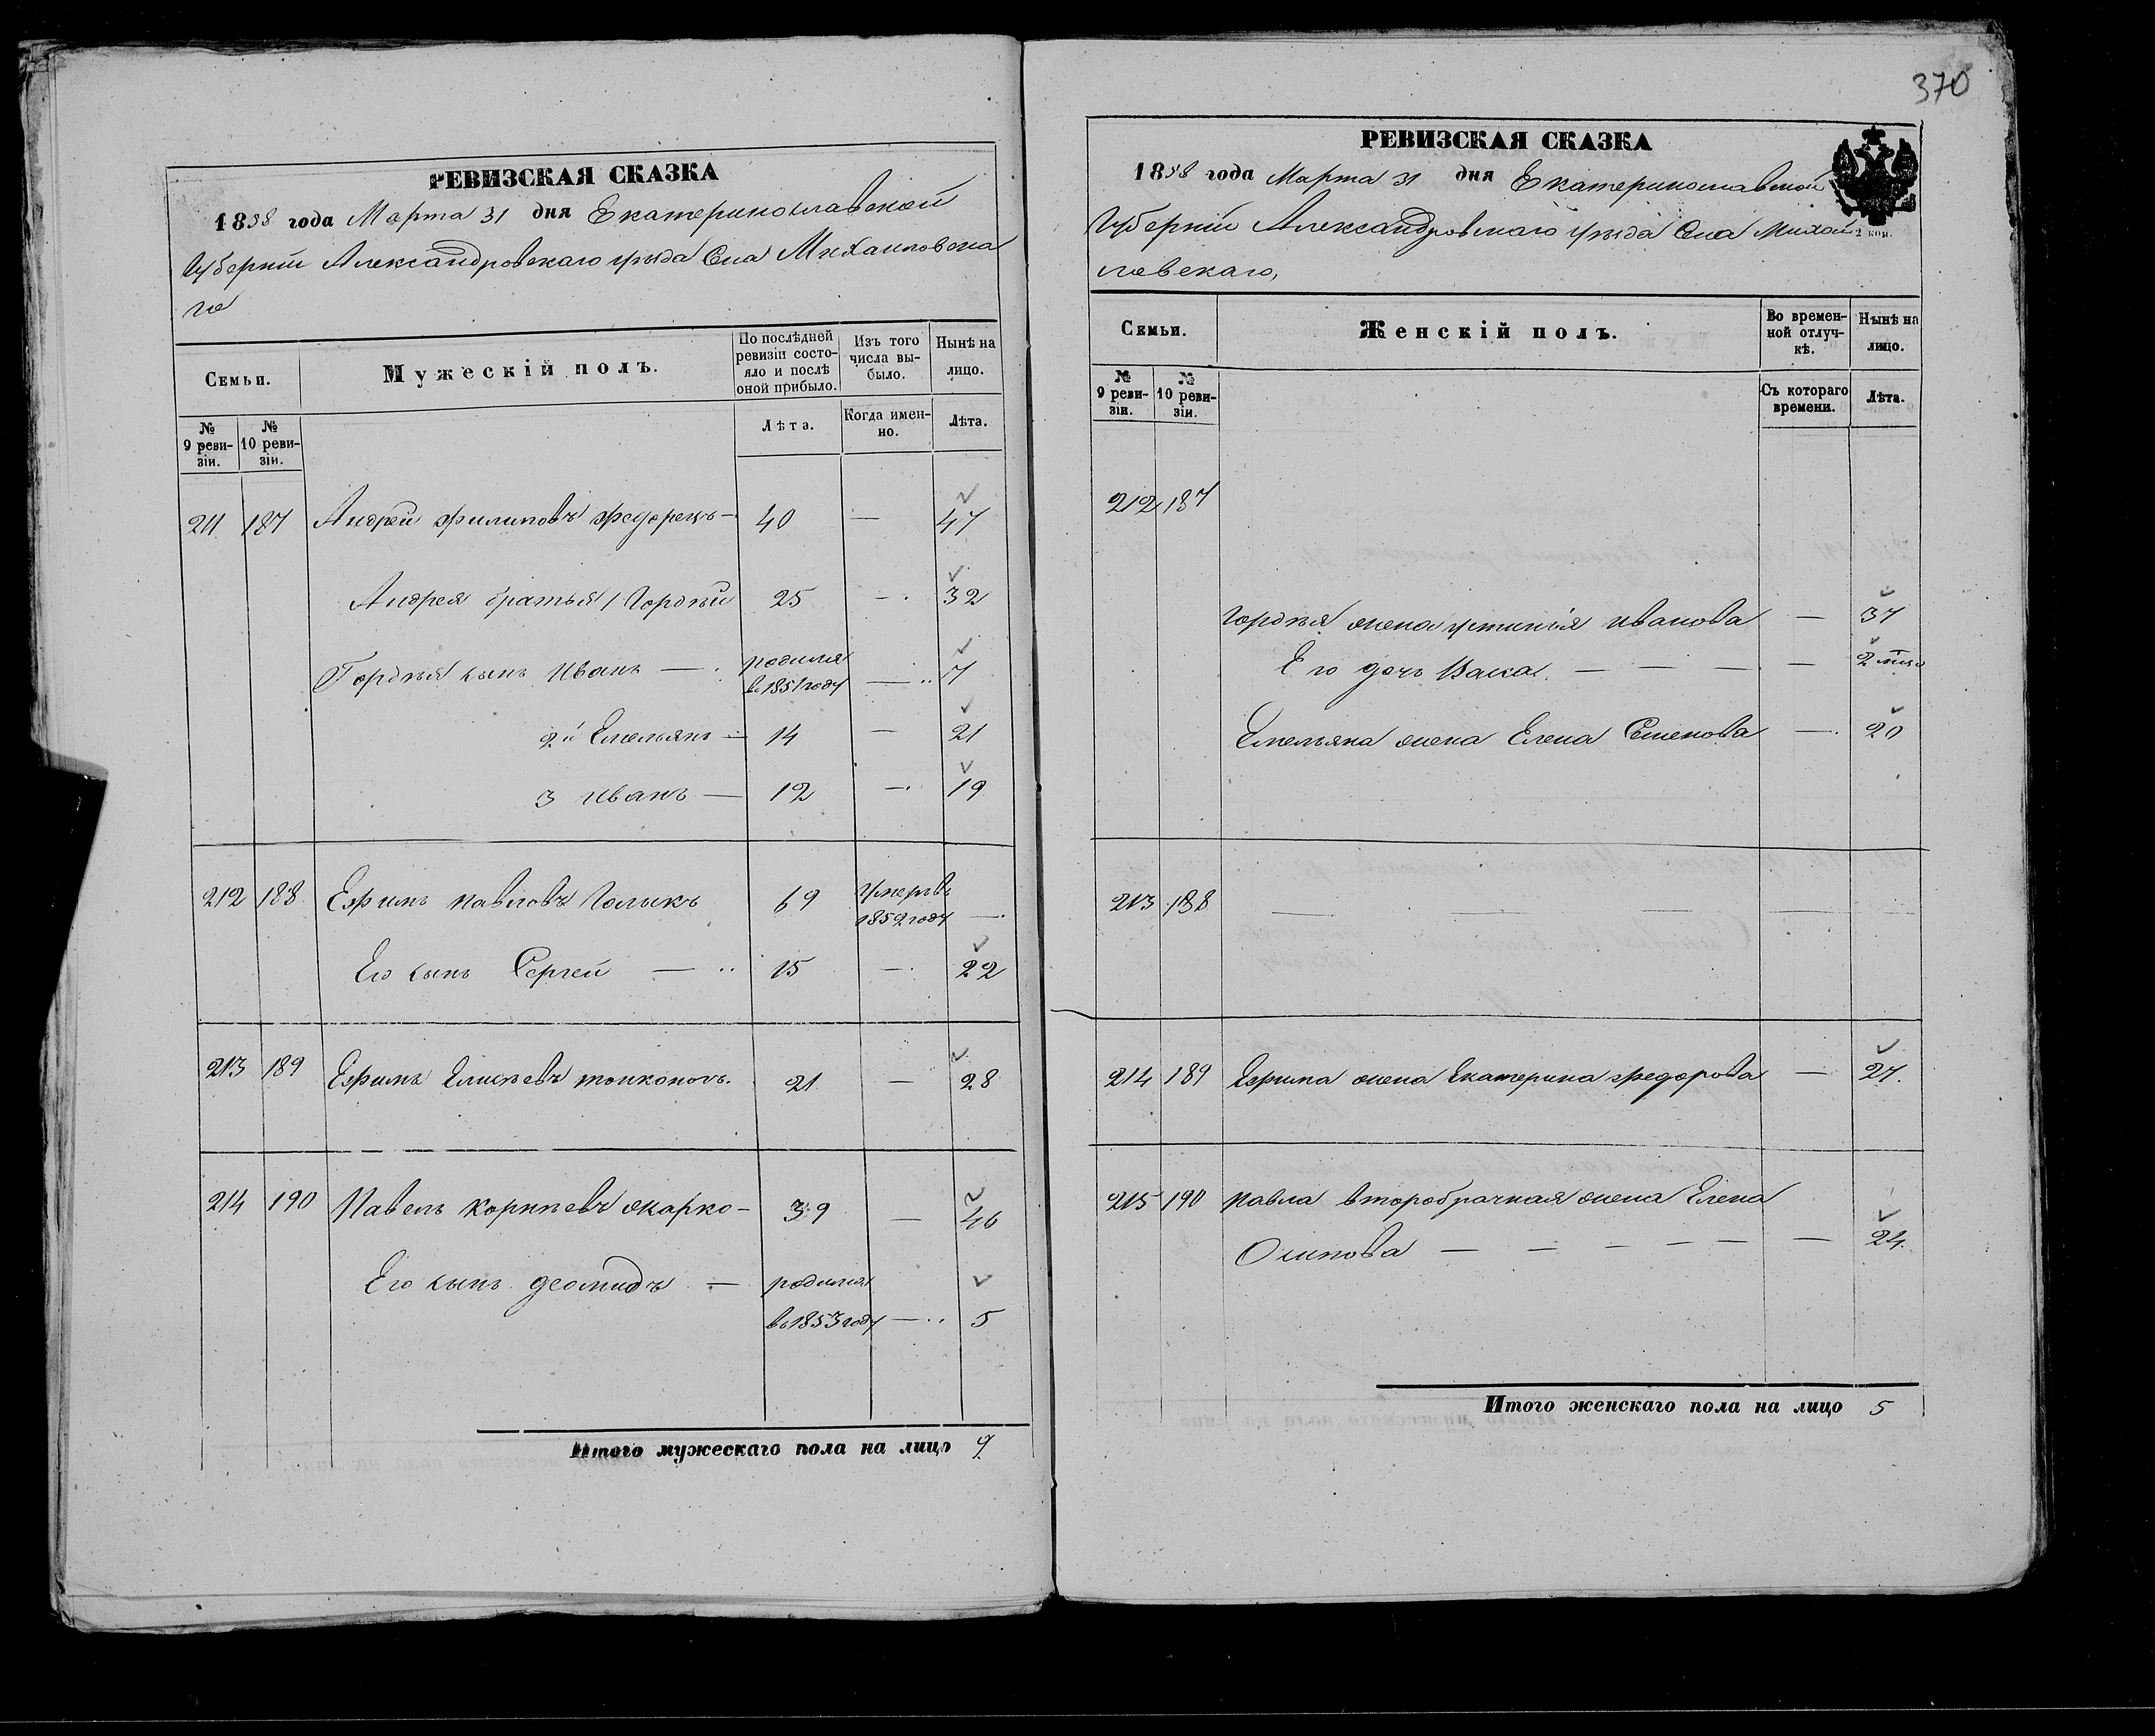 РЕВИЗСКАЯ СКАЗКА
1858 года Марта 31 дня Екатеринославской
Губерніи Александровскаго уезда Села Михаиловска
го
Семьи.
Мужескій полъ.
По послѣдней ревизіи состояло и послѣ оной прибыло.
Изъ того числа выбыло.
Нынѣ на лицо.
№ 9 ревизіи.
№ 10 ревизіи.
Лѣта.
Когда именно.
Лѣта.
211 187 Андрей Филиповъ — 40 — 47
Андрея братья 1 Гордѣй 25 — 32
Гордѣя сынъ Иванъ — родился в 1851 году — 7
2й Емельянъ — 14 — 21
3 Иванъ — 12 — 19
212 188 Ефимъ Павловъ Голыкъ 69 умеръ в 1852 году —
Его сынъ Сергей — 15 — 22
213 189 Ефимъ Елисѣевъ 21 — 28
214 190 Павелъ Корнѣевъ Жарко — 39 — 46
Его сынъ Деомидъ — родился
в 1853 году — 5
Итого мужескаго пола на лицо 9
370
РЕВИЗСКАЯ СКАЗКА
1858 года Марта 31 дня Екатеринославской
Губерніи Александровскаго уѣзда Села Михаи
ловскаго,
2 коп.
Семьи.
Женскій полъ.
Во временной отлучкѣ.
Нынѣ на лицо.
№ 9 ревизіи.
№ 10 ревизіи.
Съ котораго времени.
Лѣта.
212 187
Гордѣя жена Устинья Иванова — 37
Его дочь — — — —
Емельяна жена Елена Семенова — 20
213 188 — — — — —
214 189 Ефима жена Екатерина Федорова — 27.
215 190 Павла второбрачная жена Елена
Осипова — — — — — — 24.
Итого женскаго пола на лицо 5